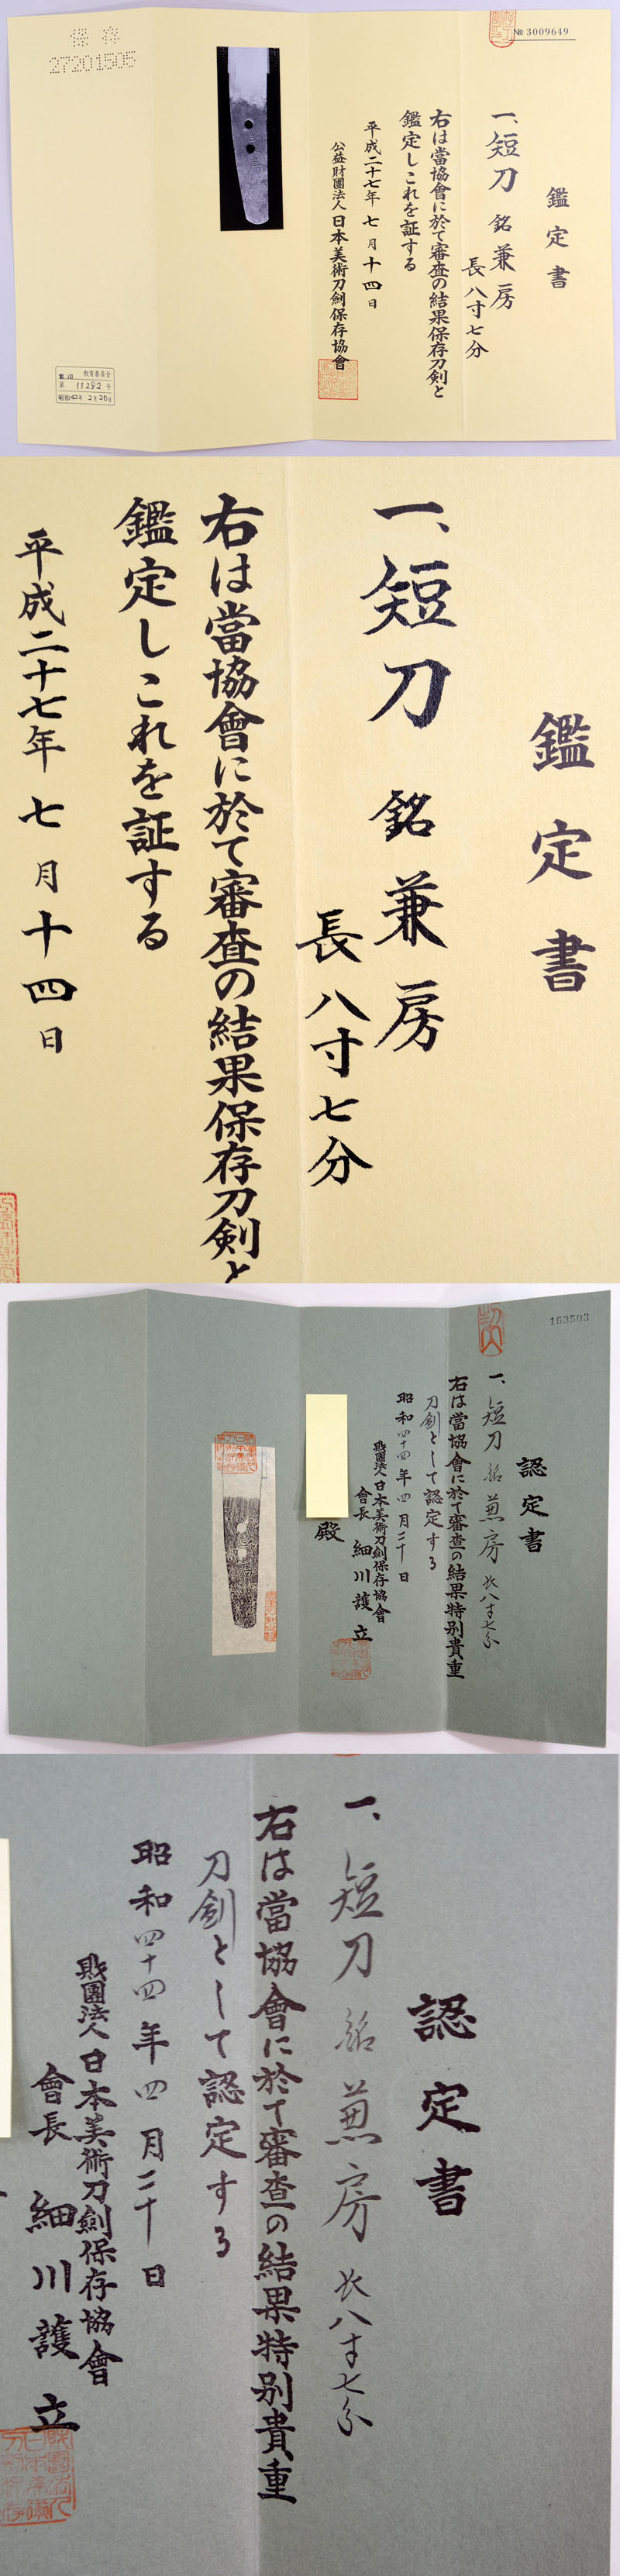 № 3009649
鑑定書
一、短刀 銘 兼房
長八寸七分
右は當協會に於て審査の結果保存刀剣と
鑑定しこれを証する
平成二十七年七月十四日
公益財團法人日本美術刀剣保存協會
保存
27201505
教育委員会
第 11282 号
昭和42年2月20日
鑑定書
一、短刀 銘 兼房
長八寸七分
右は當協會に於て審査の結果保存刀剣と
鑑定しこれを証する
平成二十七年七月十四日
163503
認定書
一、短刀 銘 兼房 長八寸七分
右は當協會に於て審査の結果特別貴重
刀劍として認定する
昭和四十四年四月二十日
財團法人日本美術刀劍保存協會
會長 細川護立
殿
認定書
一、短刀 銘 兼房 長八寸七分
右は當協會に於て審査の結果特別貴重
刀劍として認定する
昭和四十四年四月二十日
財團法人日本美術刀劍保存協會
會長 細川護立